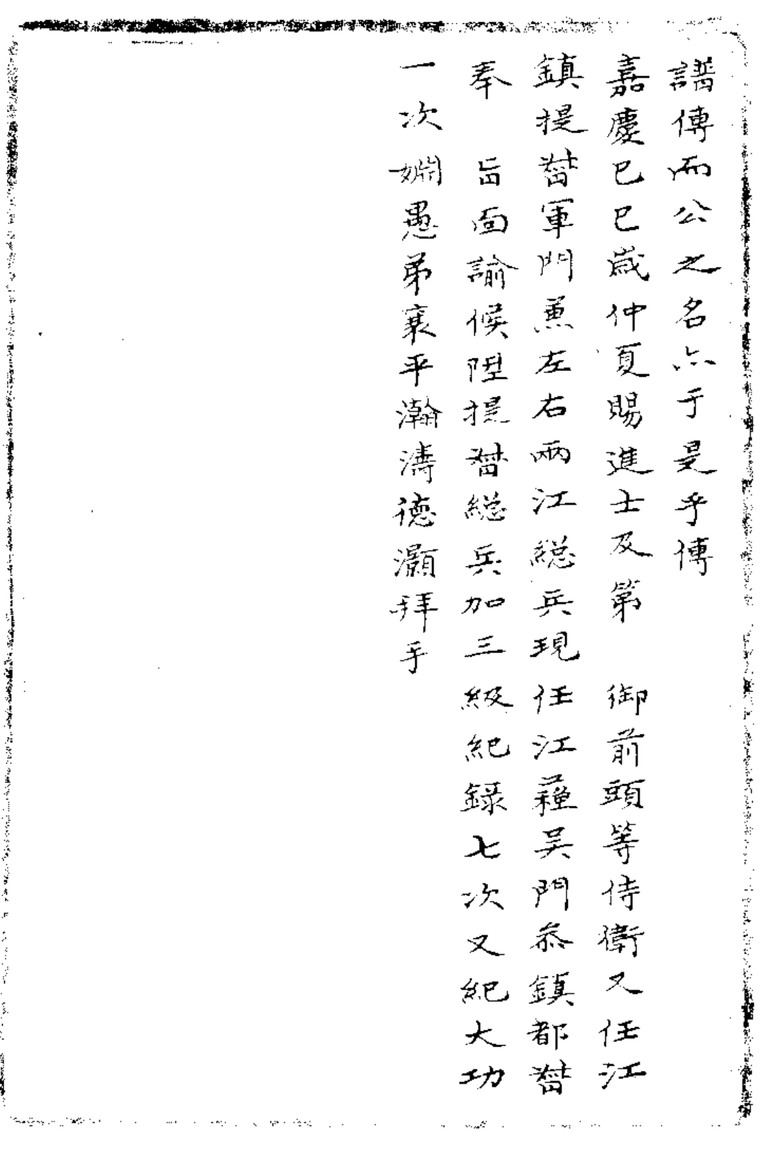 譜傳而公之名亦于是乎傳
嘉慶己巳歲仲夏賜進士及第　御前頭等侍衛又任江
鎮提督軍門兼左右兩江総兵現任江蘓吴門叅鎮都督
奉　旨面諭候陞提督総兵加三級紀録七次又紀大功
一次姻愚弟襄平瀚濤德灝拜手